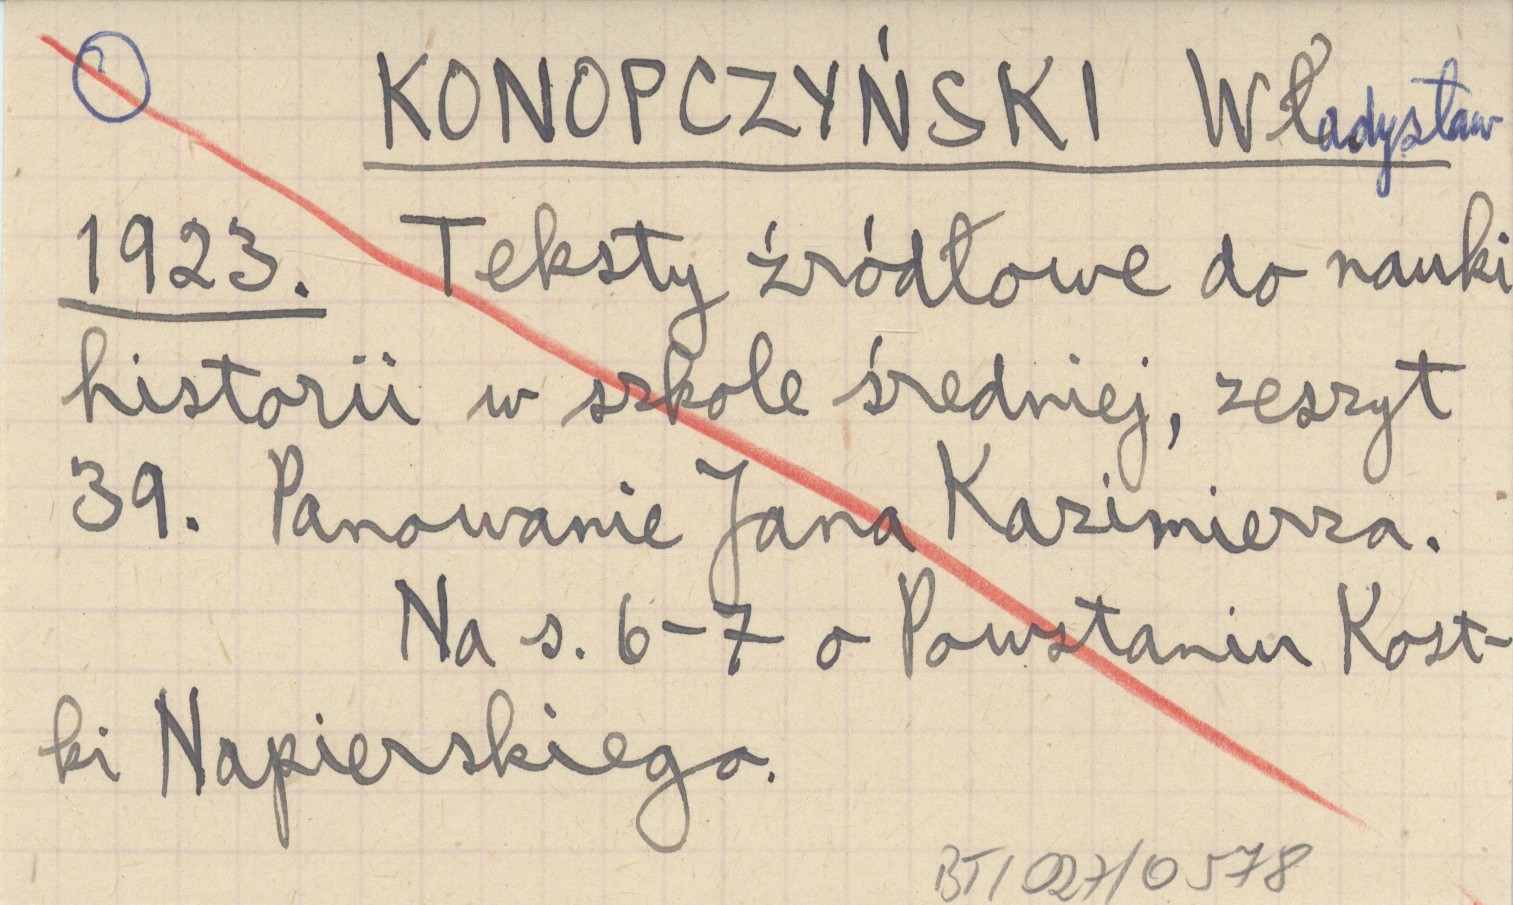 ?
KONOPCZYŃSKI Władysław
1923. Teksty źródłowe do nauki
historii w szkole średniej, zeszyt
39. Panowanie Jana Kazimierza.
Na s. 6-7 o Powstaniu Kost-
ki Napierskiego.
BT/027/0578